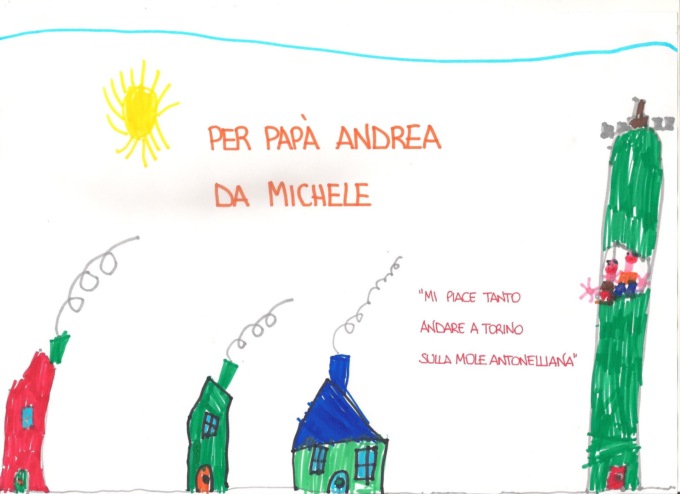 PER PAPÀ ANDREA
DA MICHELE
"MI PIACE TANTO
ANDARE A TORINO
SULLA MOLE ANTONELLIANA"